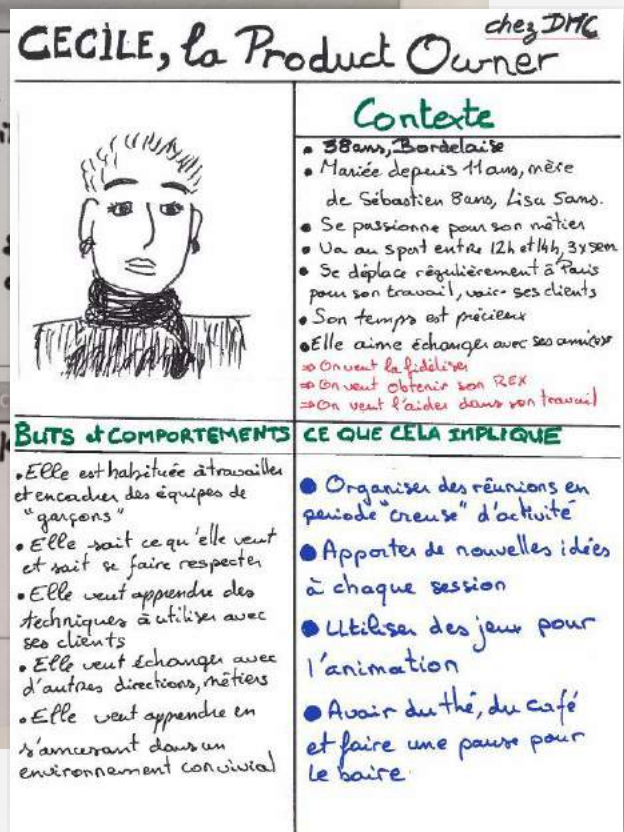 chez DMC
CECILE, la Product Owner
Contexte
• 38ans, Bordelaise
• Mariée depuis 11ans, mère
de Sébastien 8ans, Lisa 5ans.
• Se passionne pour son métier
• Va au sport entre 12h et 14h, 3xsem
• Se déplace régulièrement à Paris
pour son travail, voir ses clients
• Son temps est précieux
• Elle aime échanger avec ses
⇒ On veut la fidéliser
⇒ On veut obtenir son REX
⇒ On veut l'aider dans son travail
BUTS et COMPORTEMENTS
• Elle est habituée à travailler
et encadrer des équipes de
"garçons"
• Elle sait ce qu'elle veut
et sait se faire respecter
• Elle veut apprendre des
techniques à utiliser avec
ses clients
• Elle veut échanger avec
d'autres directions, métiers
• Elle veut apprendre en
s'amusant dans un
environnement convivial
CE QUE CELA IMPLIQUE
• Organiser des réunions en
periode "creuse" d'activité
• Apporter de nouvelles idées
à chaque session
• Utiliser des jeux pour
l'animation
• Avoir du thé, du café
et faire une pause pour
le boire